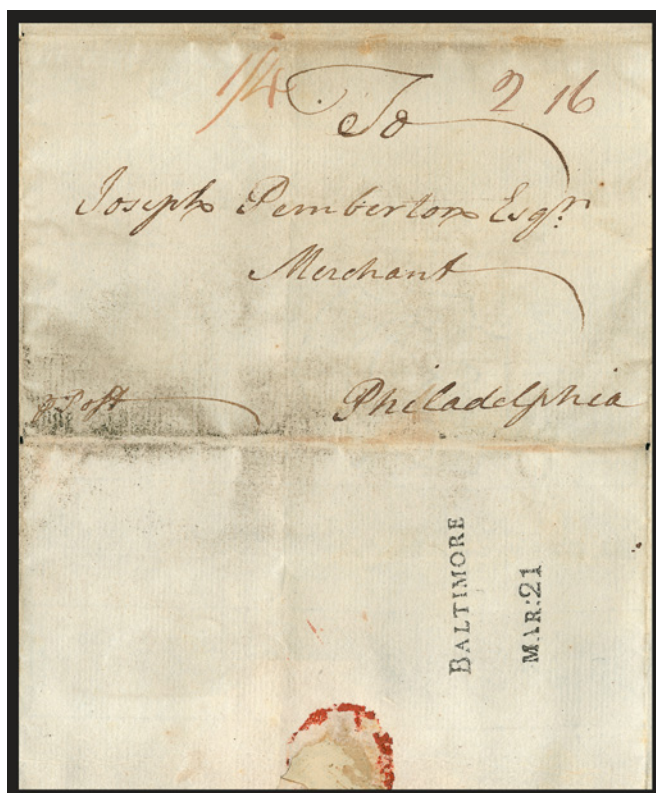 1/4 To 2 16
Joseph Pemberton Esqr.
Merchant
p Post Philadelphia
BALTIMORE
MAR:21